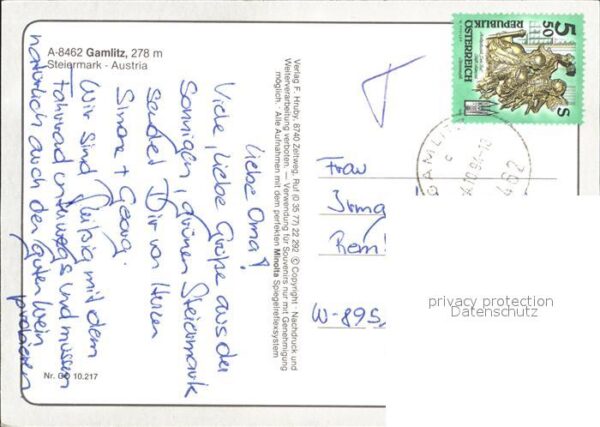 A-8462 Gamlitz, 278 m
Steiermark - Austria
Liebe Oma!
Viele, liebe Grüße aus der
sonnigen, grünen Steiermark
sendet Dir von Herzen
Simone + Georg.
Wir sind fleißig mit dem
Fahrrad unterwegs und müssen
natürlich auch den guten Wein
probieren
Nr. GO 10.217
Verlag F. Hruby, 8740 Zeltweg, Ruf (0 35 77) 22 292 © Copyright - Nachdruck und
Weiterverarbeitung verboten. — Verwendung für Souvenirs nur mit Genehmigung
möglich. · Alle Aufnahmen mit dem perfekten Minolta Spiegelreflexsystem
5 50
S
REPUBLIK
ÖSTERREICH
GAMLI
10.94-12
462
Frau
Irmg
W-895
privacy protection
Datenschutz